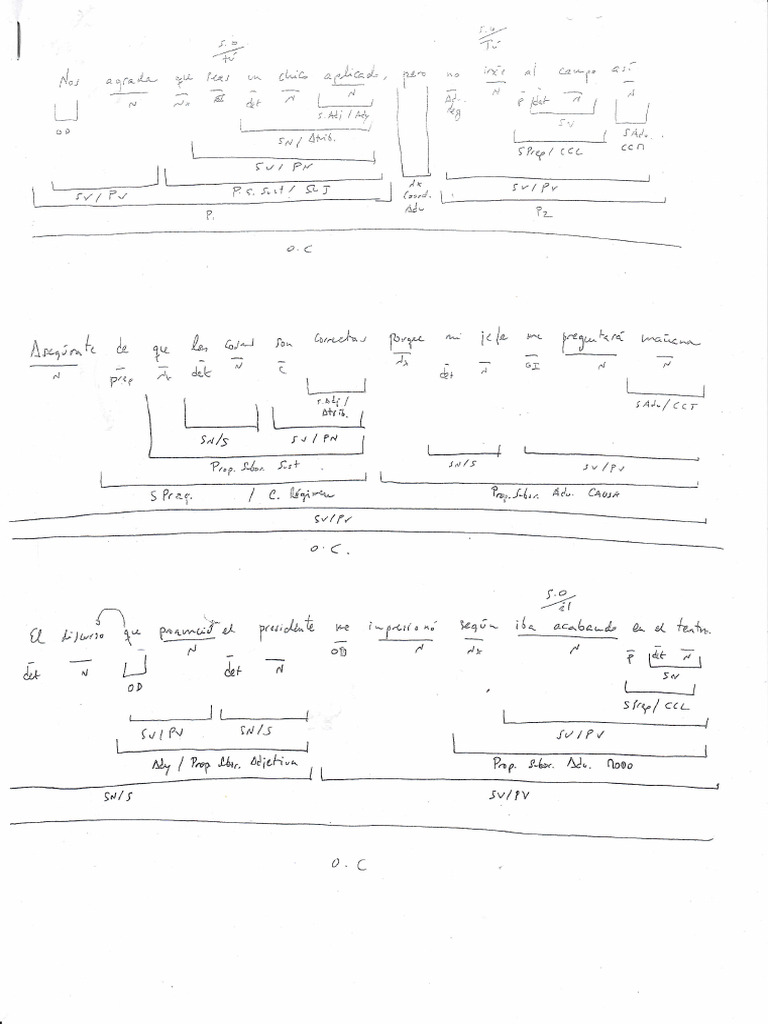 S.O S.O
tú Tú
Nos agrada que seas un chico aplicado, pero no irás al campo así
N Nx det N N N P det N N
OD S.Adj / Ady Adv. neg SN S Adv. CCM
SN / Atrib. S Prep / CCL
SV / PN
SV / PV P. S. Sust / SUJ nx Coord. Adv SV / PV
P1 P2
O.C
Asegúrate de que las cosas son correctas porque mi jefe me preguntará mañana
N prep Nx det N C Nx det N OI N N
S.Adj / Atrib. S Adv / CCT
SN/S SV / PN SN/S SV/PV
Prop. Subor. Sust
S Prep. / C. Régimen Prop. Subor. Adv. CAUSA
SV/PV
O.C.
S.O
él
El discurso que pronunció el presidente me impresionó según iba acabando en el teatro.
det N OD N det N OD N Nx N P det N
SN
S Prep / CCL
SV/PV SN/S SV/PV
Ady / Prop Subor. Adjetiva Prop. Subor. Adv. MODO
SN/S SV/PV
O.C